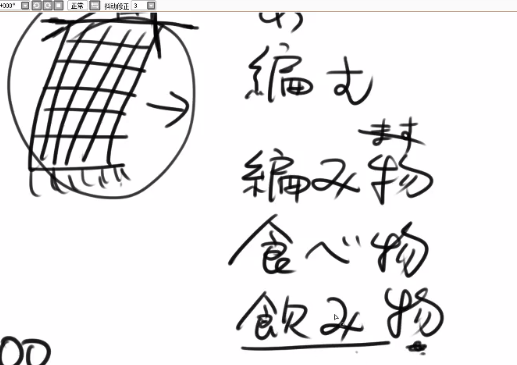 +000°
正常
抖动修正
3
編む
ます
編み物
食べ物
飲み物
00